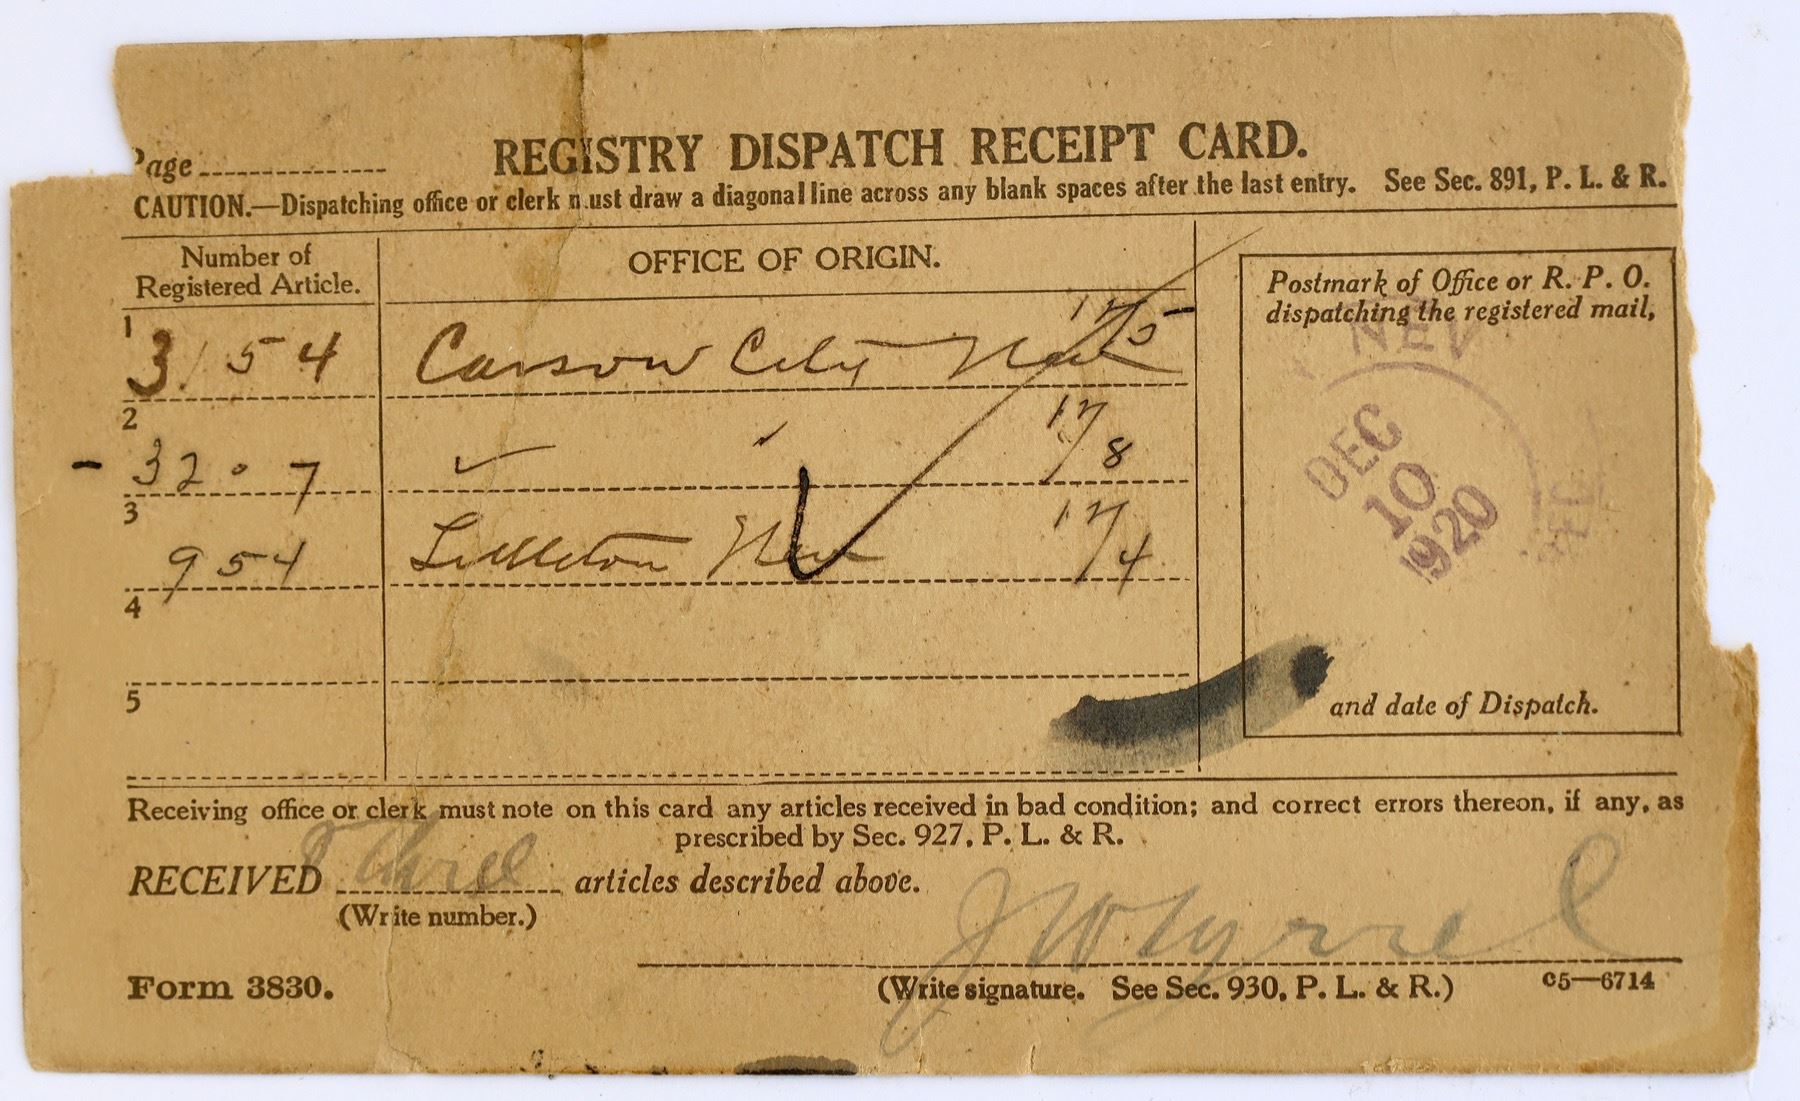 Page
REGISTRY DISPATCH RECEIPT CARD.
CAUTION.—Dispatching office or clerk must draw a diagonal line across any blank spaces after the last entry. See Sec. 891, P. L. & R.
Number of
Registered Article.
OFFICE OF ORIGIN.
Postmark of Office or R. P. O.
dispatching the registered mail,
NEV
DEC
10
1920
and date of Dispatch.
1 3154 Carson City Nev 12/5
2 - 3207 12/8
3 954 Nev 12/4
4
5
Receiving office or clerk must note on this card any articles received in bad condition; and correct errors thereon, if any, as
prescribed by Sec. 927, P. L. & R.
RECEIVED articles described above.
(Write number.)
J W Tyrrel
Form 3830.
(Write signature. See Sec. 930, P. L. & R.)
C5—6714